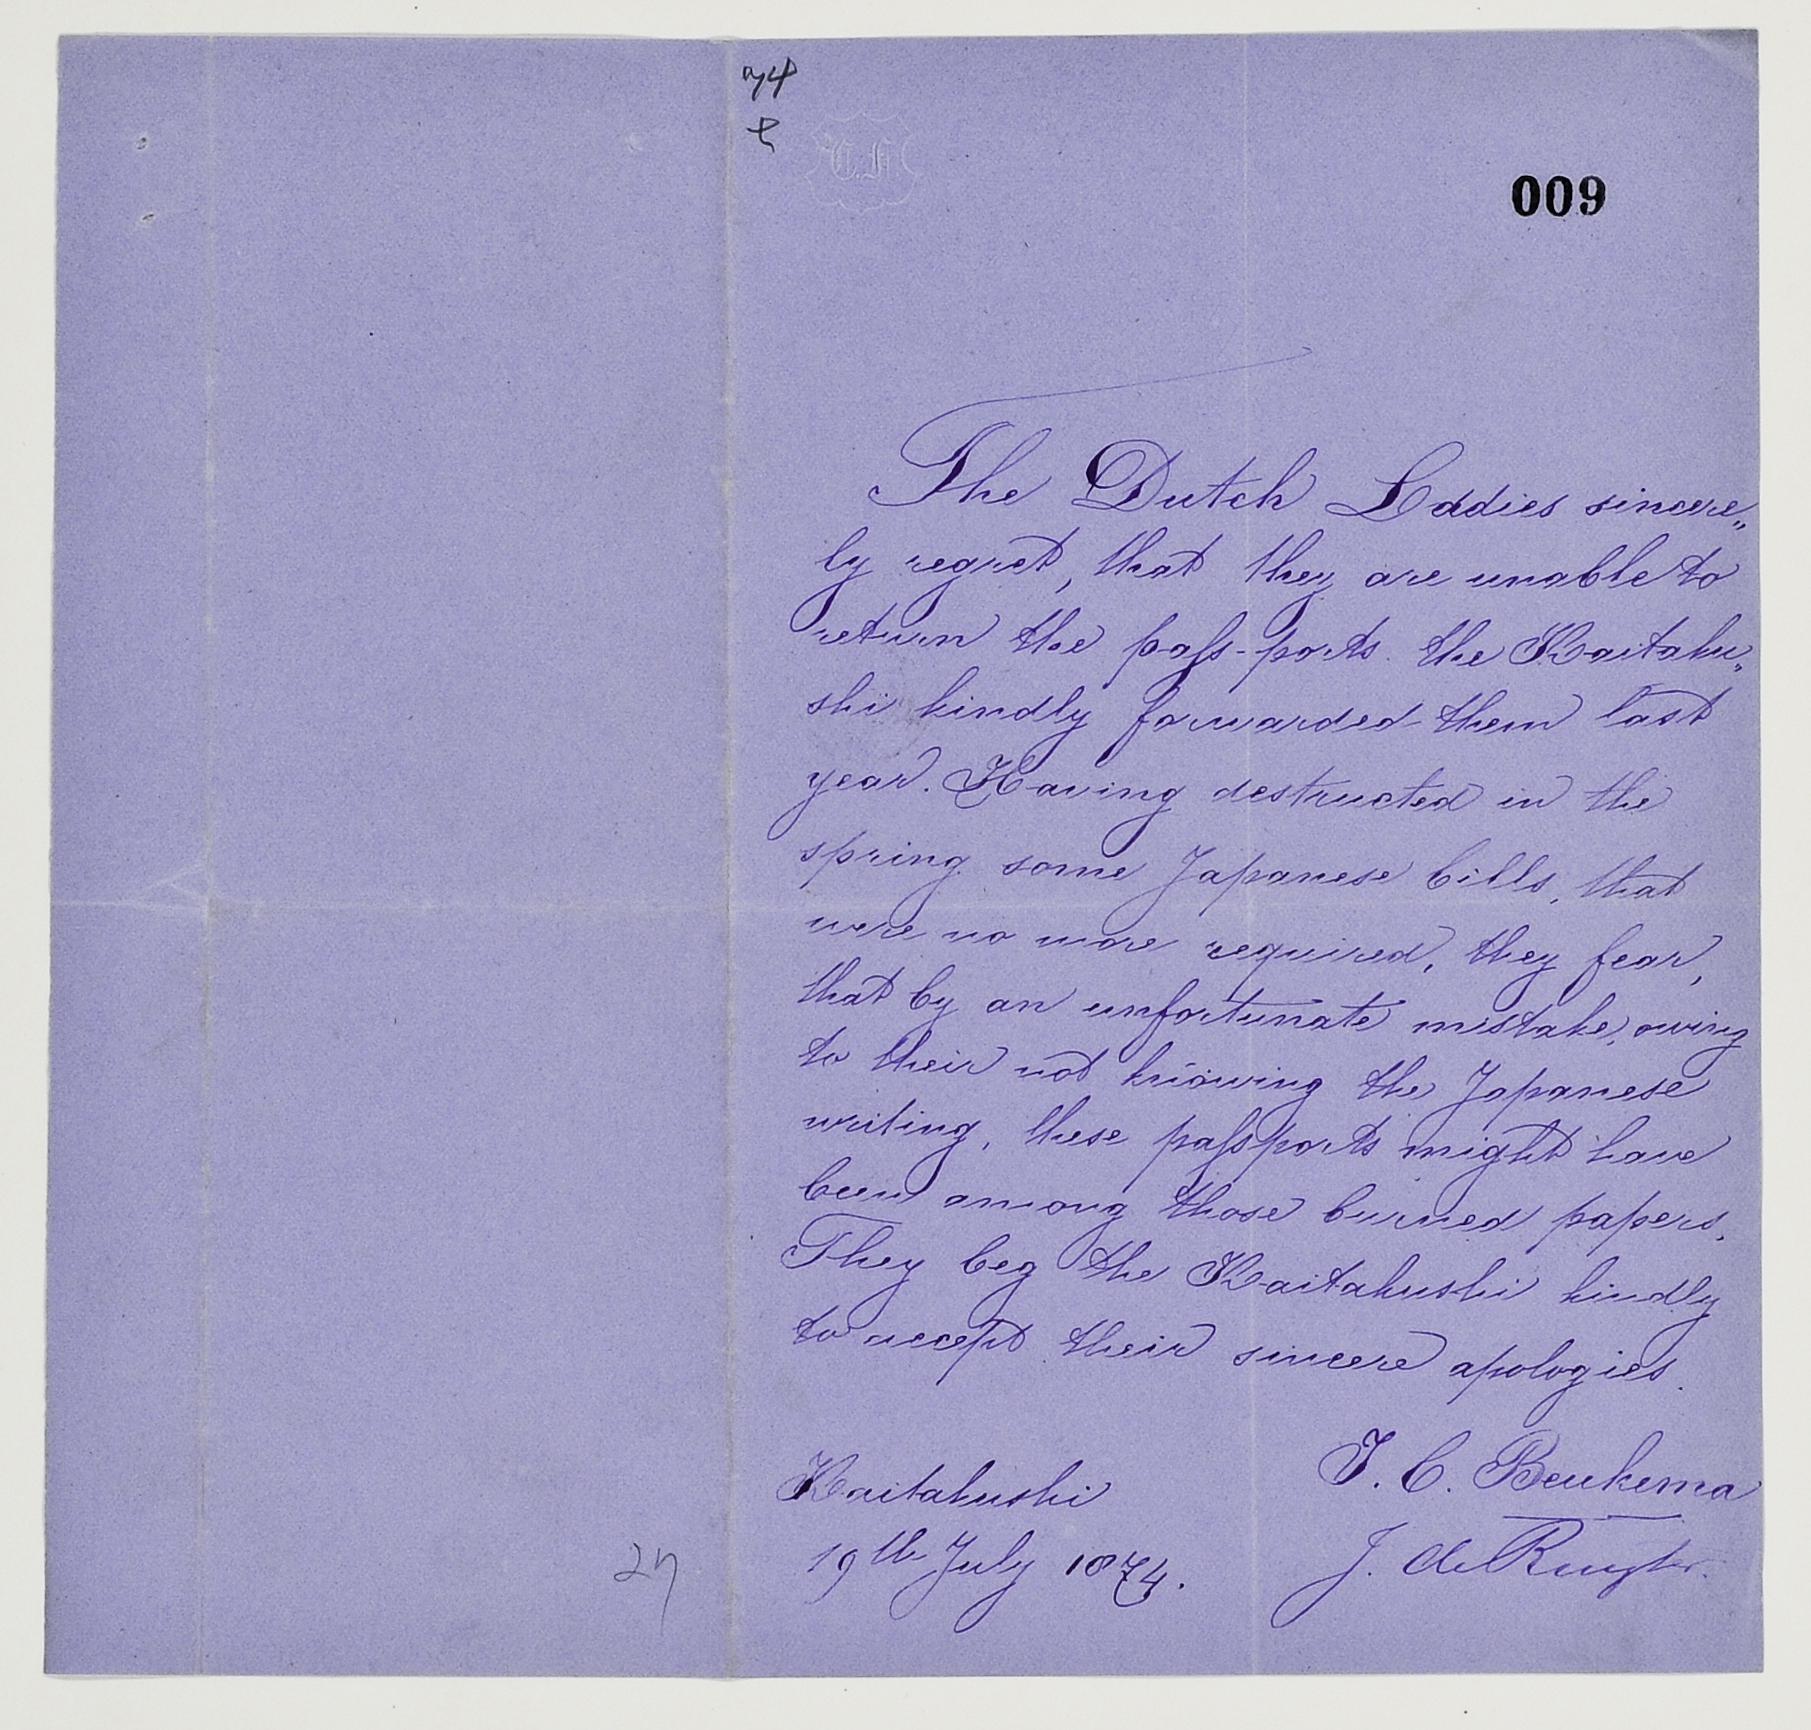 74
009
The Dutch Laddies sincere„
ly regret, that they are unable to
return the pass-ports the Kaitaku„
shi kindly forwarded them last
year. Having destructed in the
spring some Japanese bills, that
were no more required, they fear,
that by an unfortunate mistake, owing
to their not knowing the Japanese
writing, these passports might have
been among those burned papers.
They beg the Kaitakushi kindly
to accept their sincere apologies.
Kaitakushi
19th July 1874.
T. C. Beukema
J. de Ruyter.
27